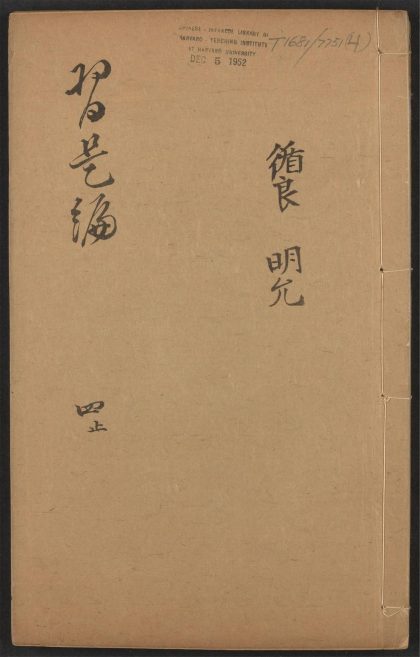 CHINESE - JAPANESE LIBRARY OF
HARVARD - YENCHING INSTITUTE
AT HARVARD UNIVERSITY
DEC 5 1952
T1681/7751(4)
循良 明允
習是編
四止